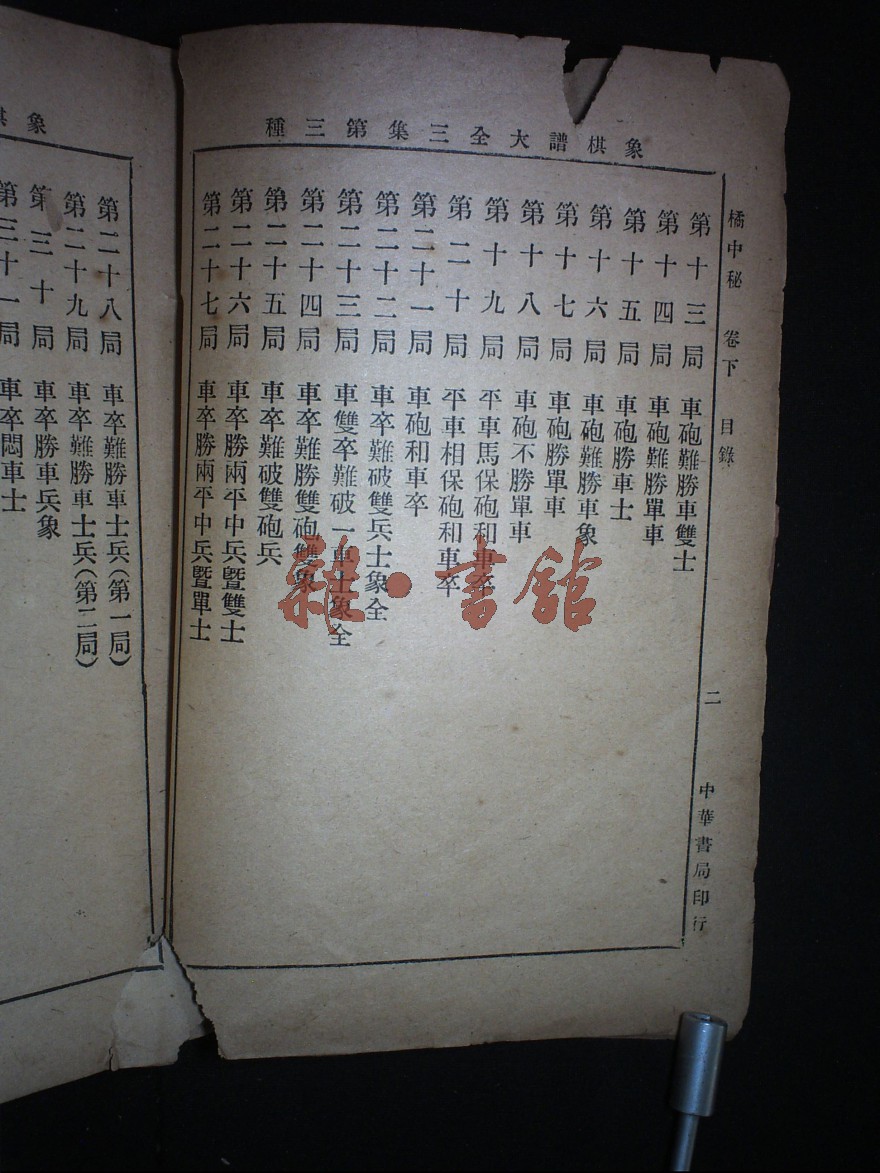 象棋譜大全三集第三種
橘中秘 卷下 目錄 二 中華書局印行
第十三局 車砲難勝車雙士
第十四局 車砲難勝單車
第十五局 車砲勝車士
第十六局 車砲難勝車象
第十七局 車砲勝單車
第十八局 車砲不勝單車
第十九局 平車馬保砲和車卒
第二十局 平車相保砲和車卒
第二十一局 車砲和車卒
第二十二局 車卒難破雙兵士象全
第二十三局 車雙卒難破一車士象全
第二十四局 車卒難勝雙砲雙象
第二十五局 車卒難破雙砲兵
第二十六局 車卒勝兩平中兵暨雙士
第二十七局 車卒勝兩平中兵暨單士
象棋
第二十八局 車卒難勝車士兵(第一局)
第二十九局 車卒難勝車士兵(第二局)
第三十局 車卒勝車兵象
第三十一局 車卒悶車士
雜·書館